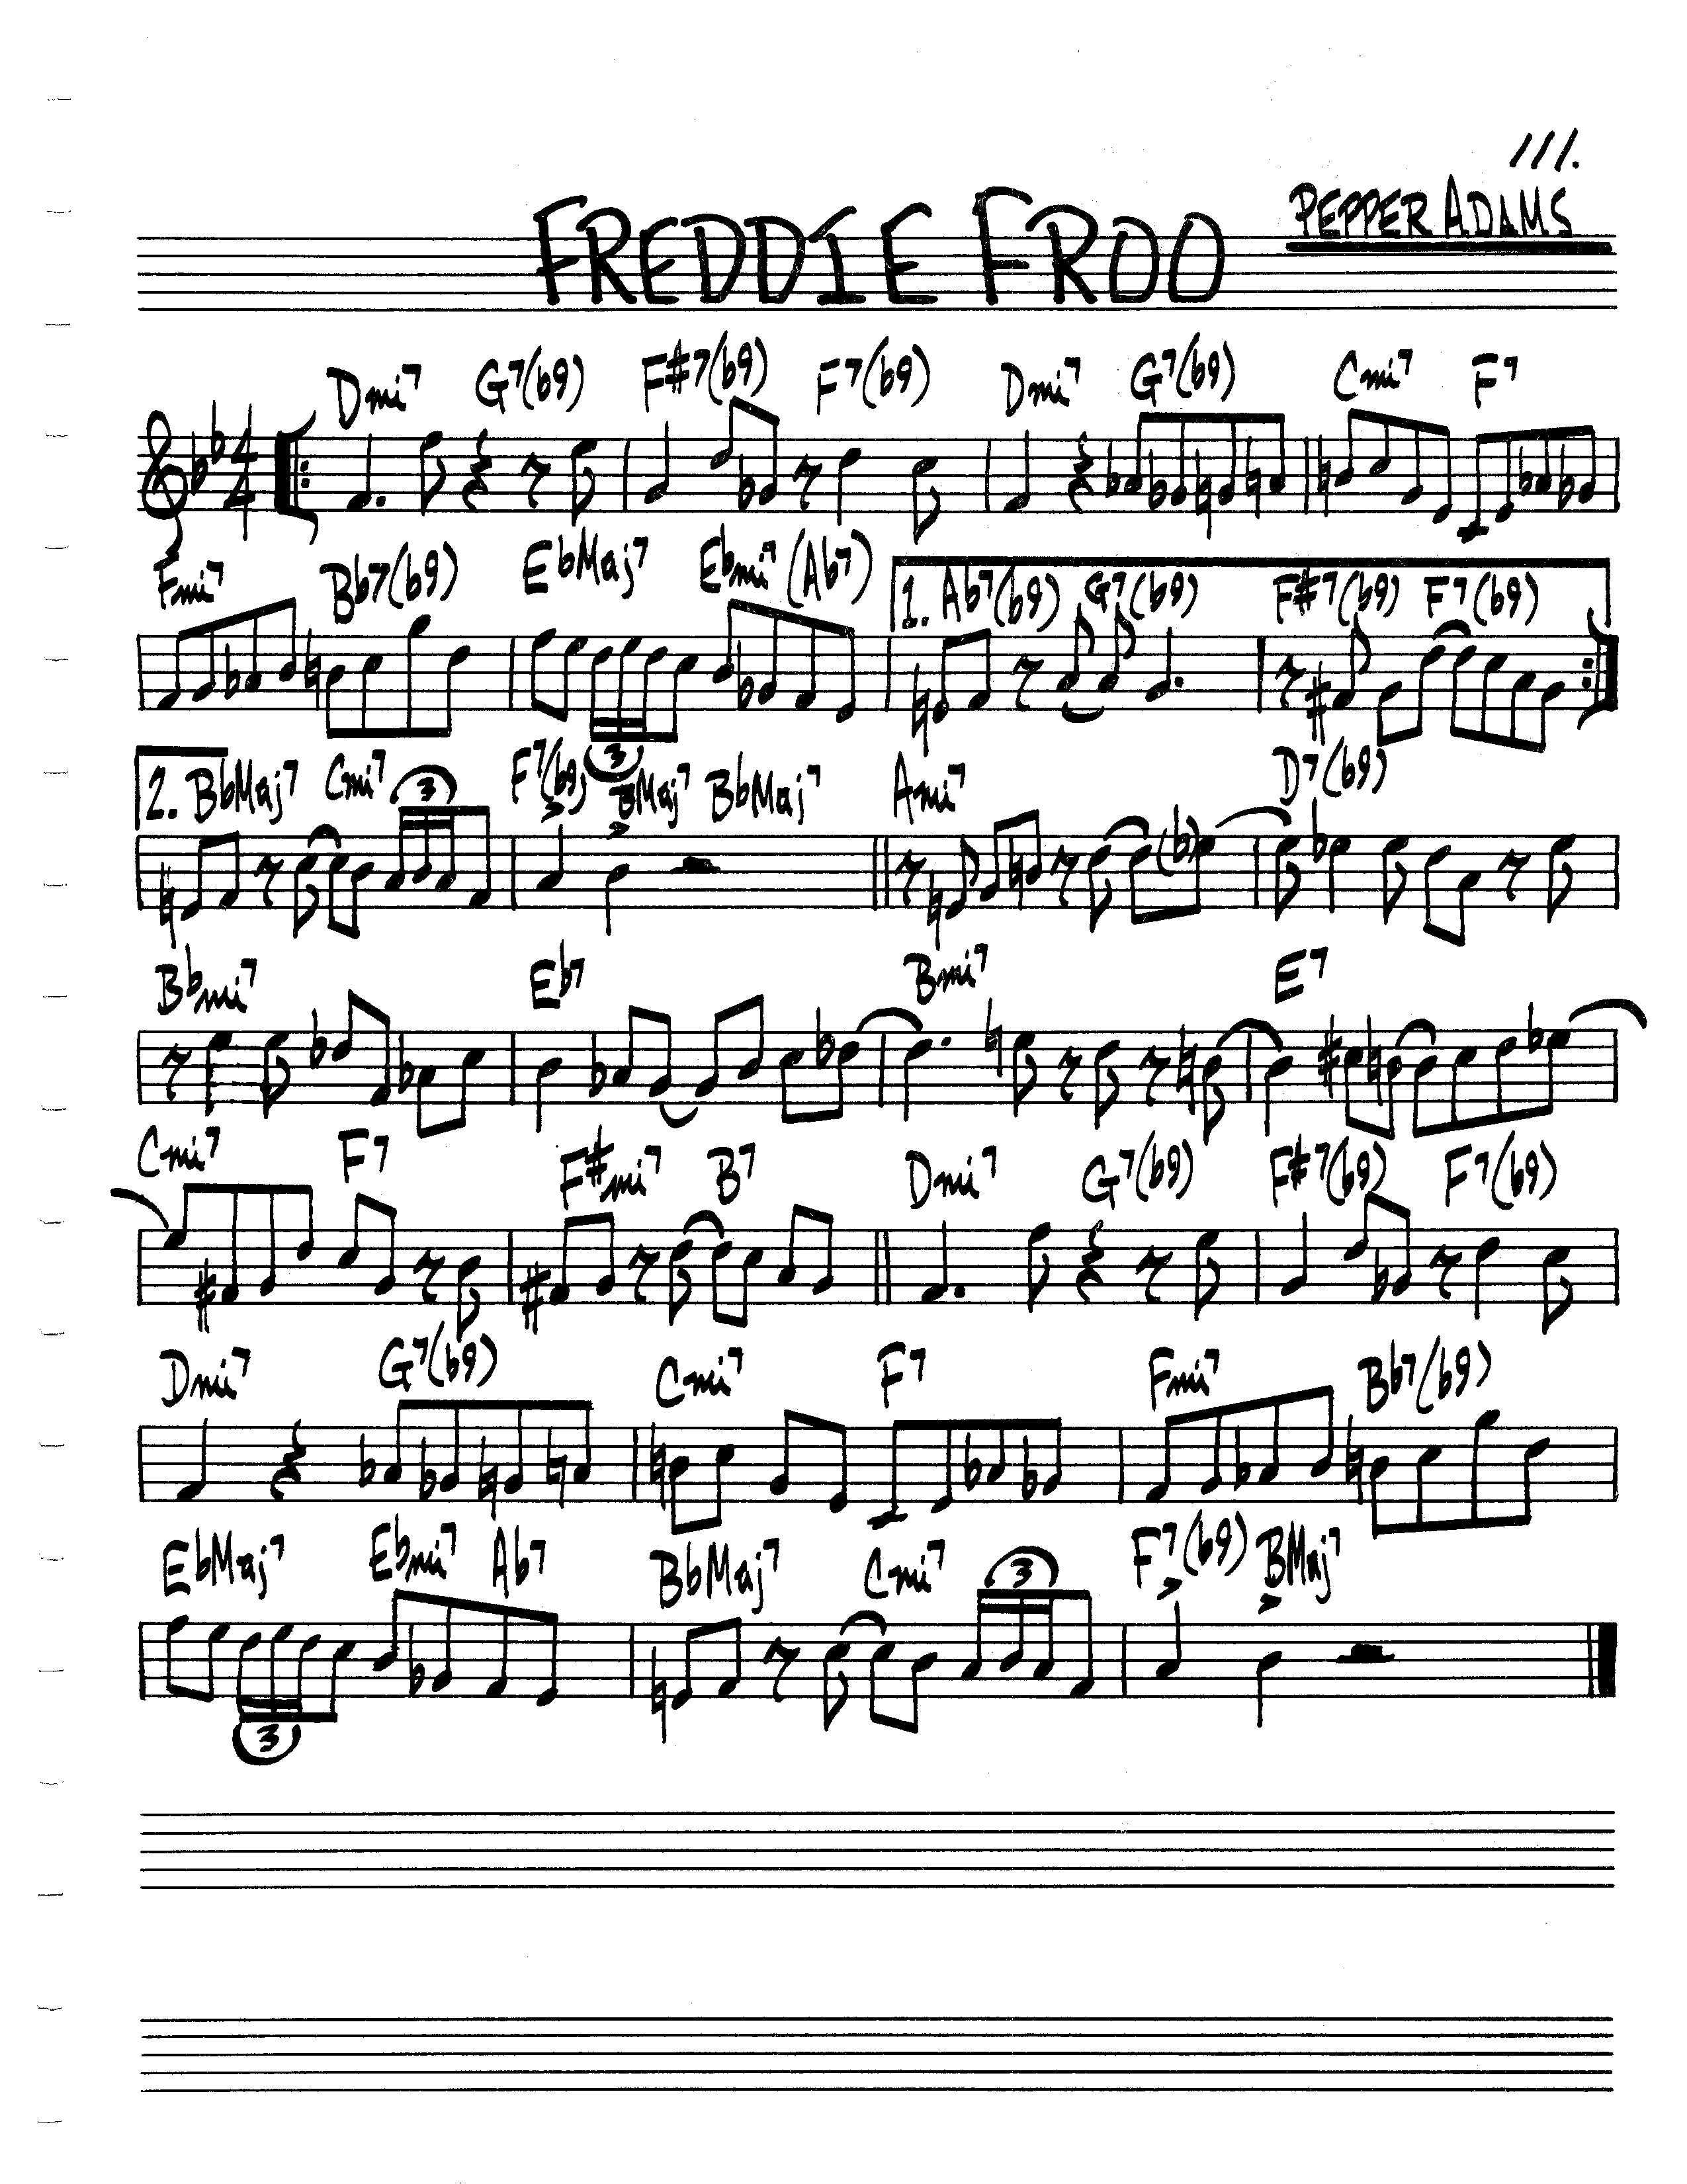 111.
FREDDIE FROO
PEPPER ADAMS
Dmi7 G7(b9) F#7(b9) F7(b9) Dmi7 G7(b9) Cmi7 F7
4
4
Fmi7 Bb7(b9) EbMaj7 Ebmi7 (Ab7) 1. Ab7(b9) G7(b9) F#7(b9) F7(b9)
3
2. BbMaj7 Cmi7 F7(b9) BMaj7 BbMaj7 Ami7 D7(b9)
3
(b)
Bbmi7 Eb7 Bmi7 E7
Cmi7 F7 F#mi7 B7 Dmi7 G7(b9) F#7(b9) F7(b9)
Dmi7 G7(b9) Cmi7 F7 Fmi7 Bb7(b9)
EbMaj7 Ebmi7 Ab7 BbMaj7 Cmi7 F7(b9) BMaj7
3
3